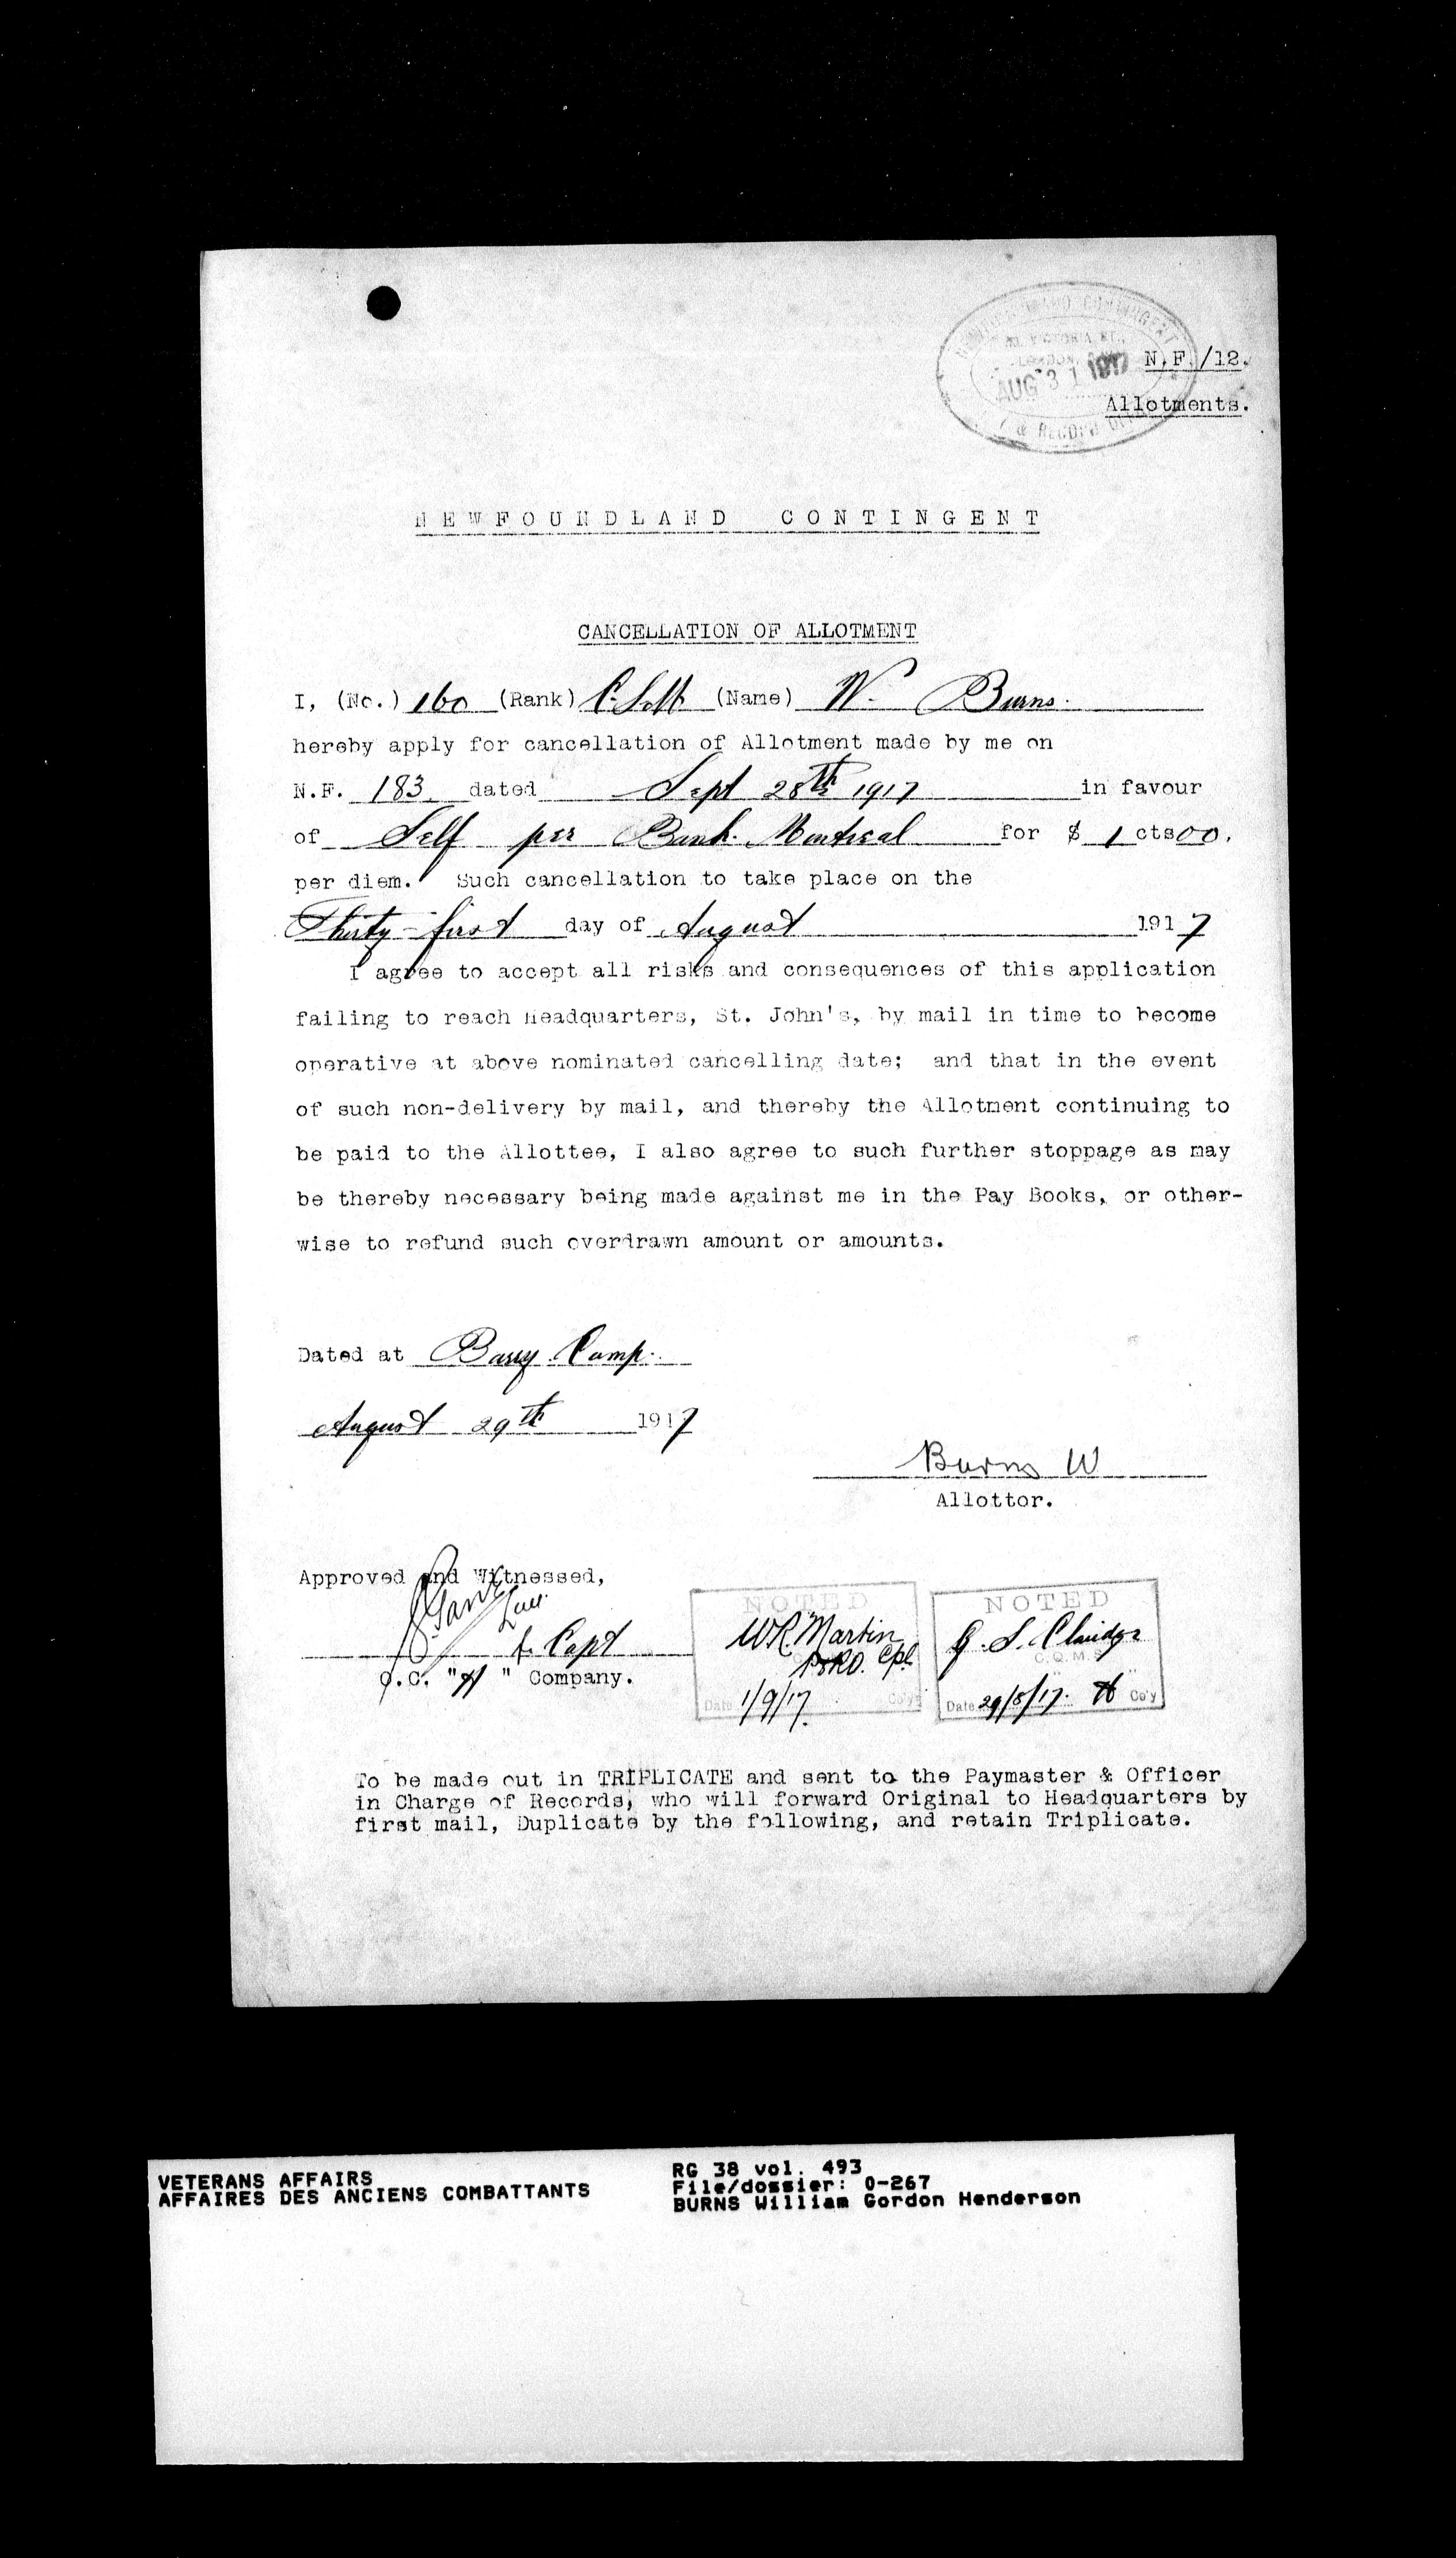 NEWFOUNDLAND CONTINGENT
58, VICTORIA ST.,
LONDON,
AUG 31 1917
& RECORD OFFICE
N.F./12.
Allotments.
NEWFOUNDLAND CONTINGENT
CANCELLATION OF ALLOTMENT
I, (No.) 160 (Rank) (Name) W. Burns.
hereby apply for cancellation of Allotment made by me on
N.F. 183 dated Sept 28th 1917 in favour
of Self per Bank. Montreal for $ 1 cts 00.
per diem. Such cancellation to take place on the
Thirty-first day of August 1917
I agree to accept all risks and consequences of this application
failing to reach Headquarters, St. John's, by mail in time to become
operative at above nominated cancelling date; and that in the event
of such non-delivery by mail, and thereby the Allotment continuing to
be paid to the Allottee, I also agree to such further stoppage as may
be thereby necessary being made against me in the Pay Books, or other-
wise to refund such overdrawn amount or amounts.
Dated at Barry Camp.
August 29th 1917
Burns W
Allottor.
Approved and Witnessed,
f. Capt
O.C. "H" Company.
NOTED
W.R. Martin
P&RO. Cpl.
Date 1/9/17. Co'y
NOTED
G. S. Claridge
C.Q.M.S.
Date 29/8/17. H Co'y
To be made out in TRIPLICATE and sent to the Paymaster & Officer
in Charge of Records, who will forward Original to Headquarters by
first mail, Duplicate by the following, and retain Triplicate.
VETERANS AFFAIRS
AFFAIRES DES ANCIENS COMBATTANTS
RG 38 vol. 493
File/dossier: 0-267
BURNS William Gordon Henderson